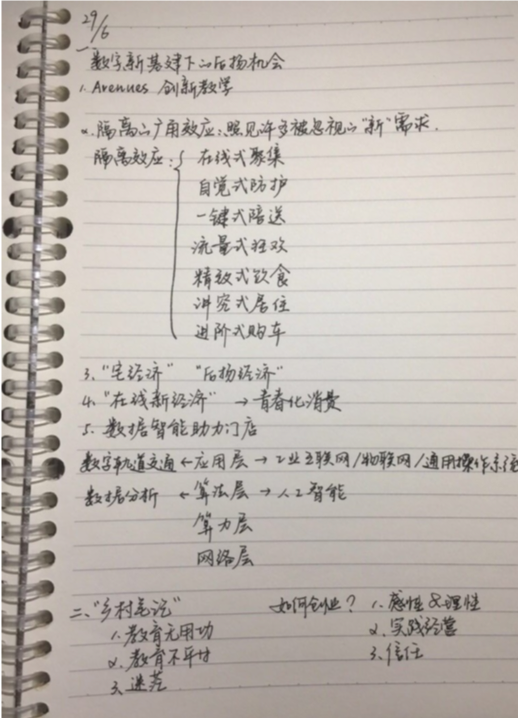 29/6
一、数字新基建下的后扬机会
1. Avenues 创新教学
2. 隔离的广角效应：照见许多被忽视的"新"需求.
隔离效应：{ 在线式聚集
自觉式防护
一键式陪送
流量式狂欢
精致式饮食
讲究式居住
进阶式购车
3. "宅经济" "后扬经济"
4. "在线新经济" → 青春化消费
5. 数据智能助力门店
数字轨道交通 ← 应用层 → 工业互联网/物联网/通用操作系统
数据分析 ← 算法层 → 人工智能
算力层
网络层
二、"乡村笔记" 如何创业？ 1. 感性 & 理性
1. 教育无用功 2. 实践经营
2. 教育不平等 3. 信任
3. 迷茫